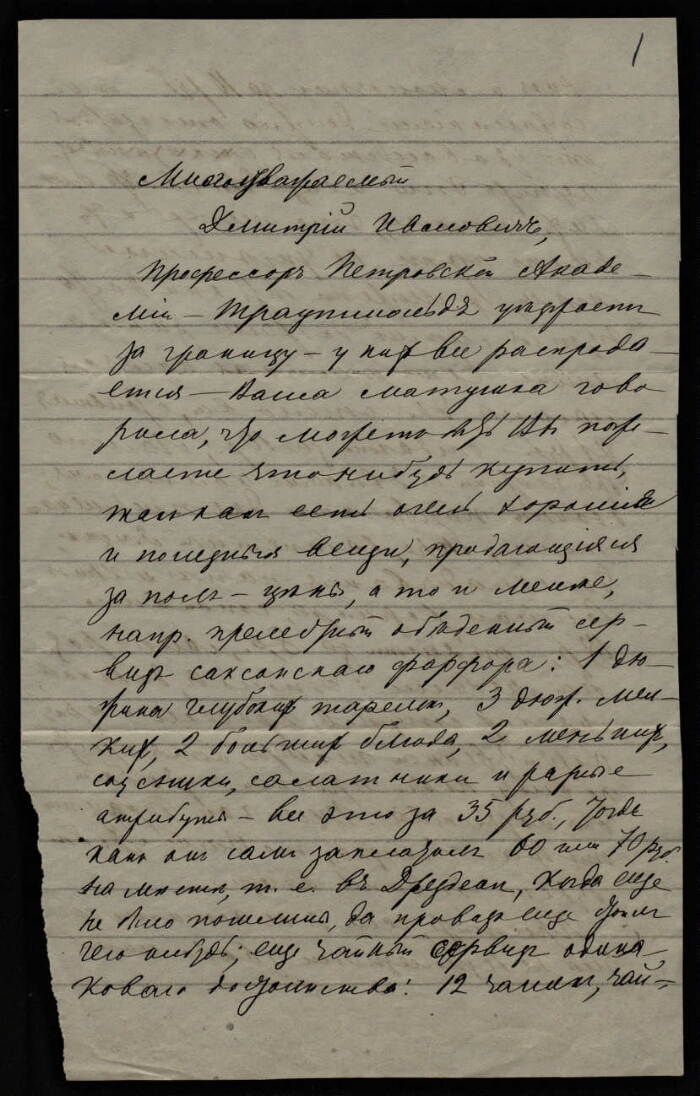 1
Многоуважаемый
Дмитрій Ивановичъ,
Профессоръ Петровской Акаде-
міи – Траутшольдъ уѣзжаетъ
за границу – у них все распрода-
ется – Ваша матушка гово
рила, что можетъ быть Вы поже-
лаете что нибудь купить,
там есть очень хорошія
и полезныя вещи, продающіяся
за полъ – цѣны, а то и менѣе,
напр. прелестный обѣденный сер-
визъ саксонскаго фарфора: 1 дю-
жина глубоких тарелок, 3 дюж. мел-
ких, 2 больших блюда, 2 меньших,
соусники, салатники и разные
атрибуты – все это за 35 руб., тогда
как они сами заплатили 60 или 70 руб.
на мѣстѣ, т. е. въ Дрезденѣ, когда еще
не было пошлины, да провозъ еще стоил
чего нибудь; еще чайный сервиз одина
коваго достоинства: 12 чашек, чай-